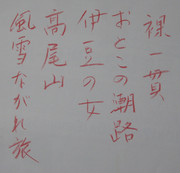 裸一貫
おとこの潮路
伊豆の女
高尾山
風雪ながれ旅